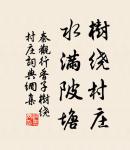 樹繞村庄
水滿陂塘
秦觀行香子樹繞
村庄詞典網集